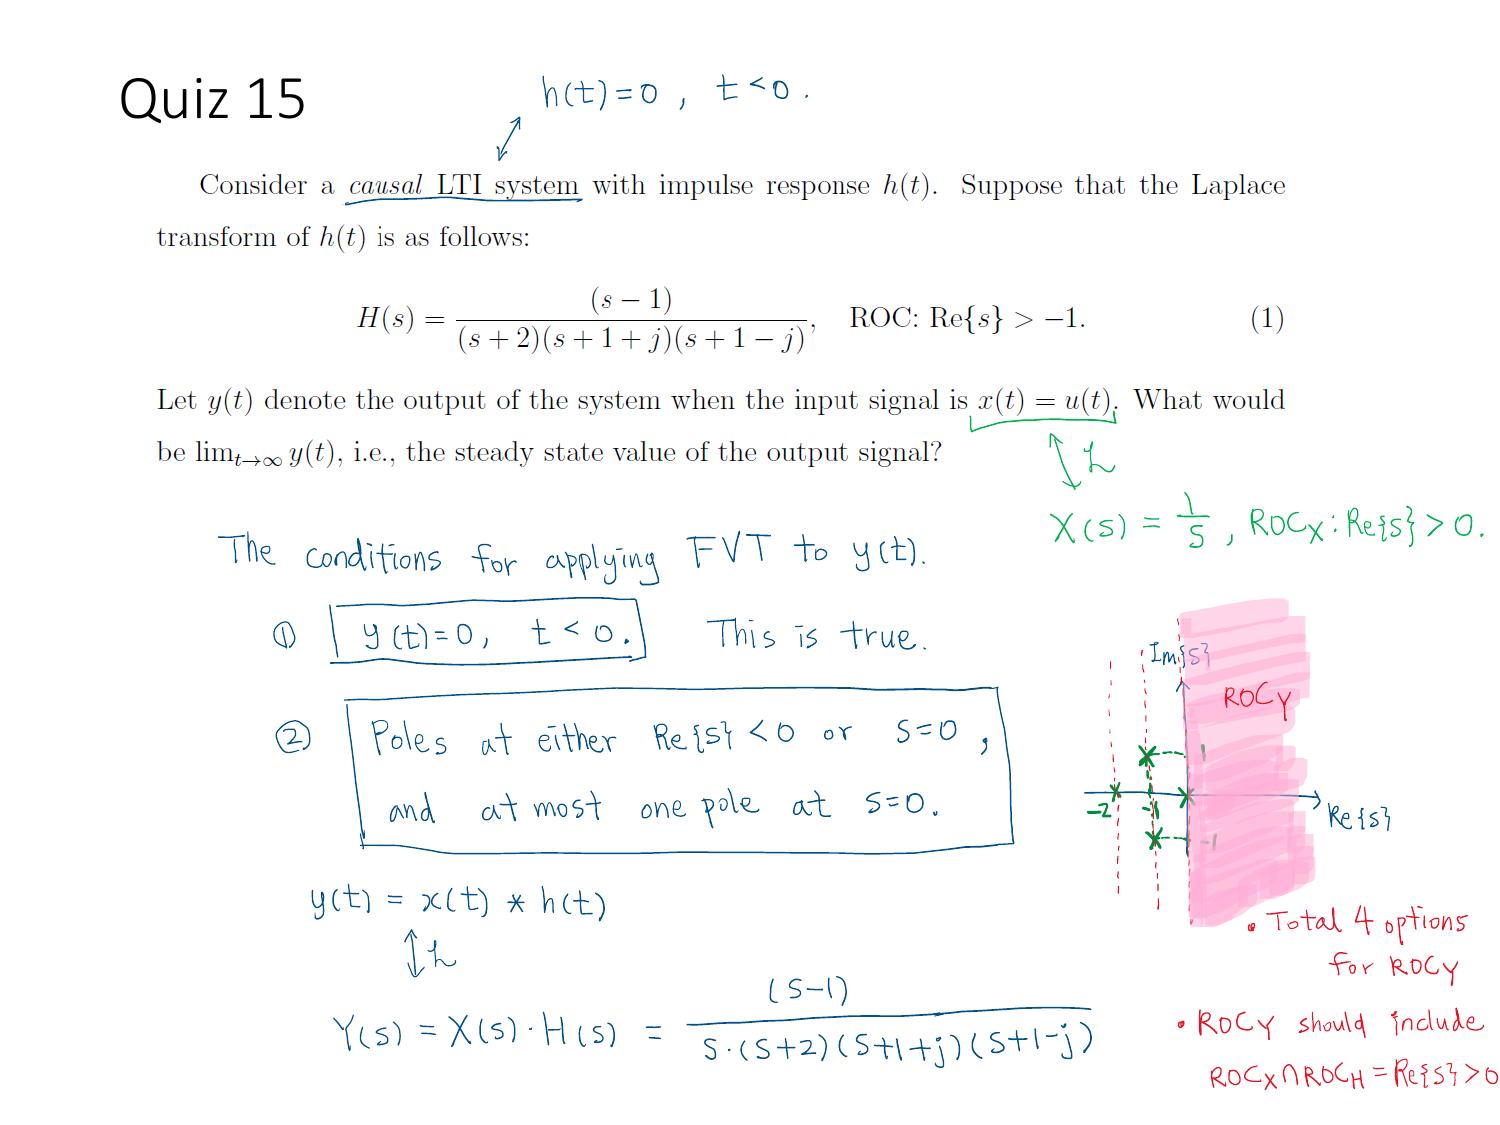 Quiz 15
h(t)=0 , t<0.
Consider a causal LTI system with impulse response h(t). Suppose that the Laplace
transform of h(t) is as follows:
H(s) = (s − 1) / (s + 2)(s + 1 + j)(s + 1 − j), ROC: Re{s} > −1. (1)
Let y(t) denote the output of the system when the input signal is x(t) = u(t). What would
be lim_{t→∞} y(t), i.e., the steady state value of the output signal?
L
X(s) = 1/s , ROC_X : Re{s} > 0.
The conditions for applying FVT to y(t).
① y(t)=0, t<0. This is true.
② Poles at either Re{s}<0 or s=0,
and at most one pole at s=0.
Im{s}
ROC_Y
1
-2 -1
Re{s}
-1
y(t) = x(t) * h(t)
L
Y(s) = X(s)·H(s) = (s-1) / s·(s+2)(s+1+j)(s+1-j)
• Total 4 options
for ROC_Y
• ROC_Y should include
ROC_X∩ROC_H = Re{s}>0